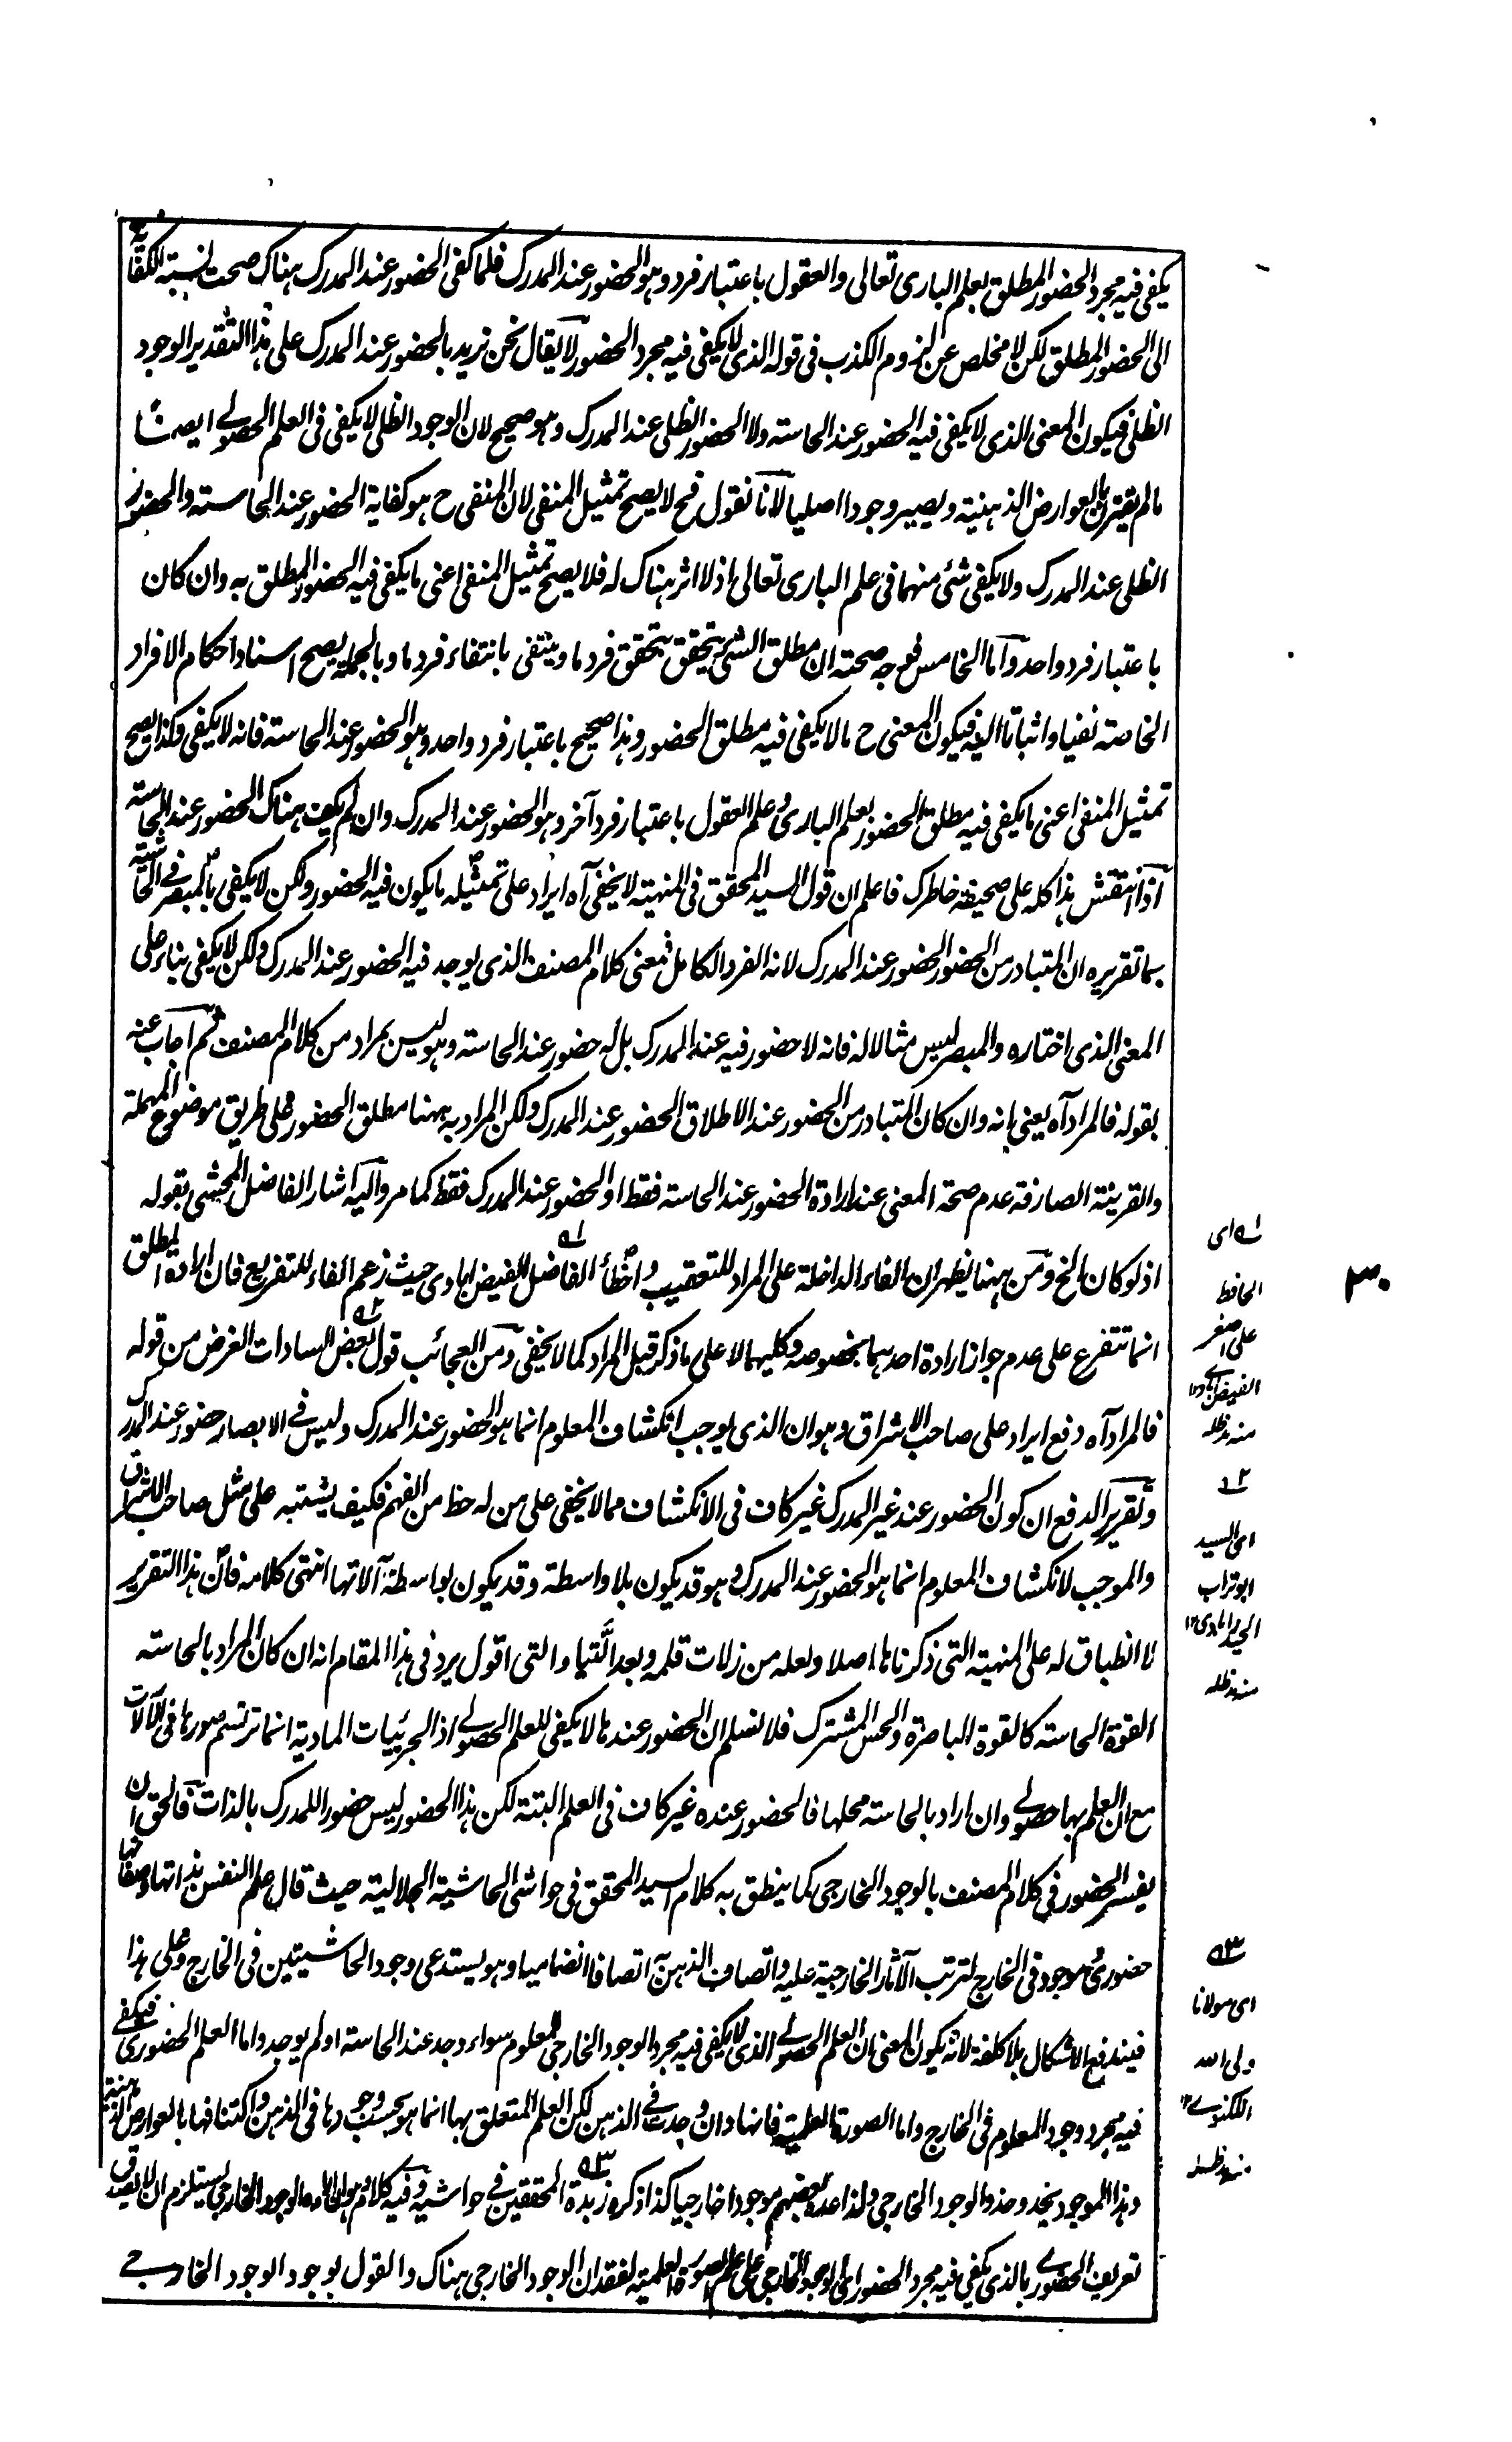 يكفى فيه مجرد الحضور المطلق بعلم البارى تعالى والعقول باعتبار فرد وهو الحضور عند المدرك فلما كفى الحضور عند المدرك هناك صحت نسبة الكفاية
الى الحضور المطلق لكن لا مخلص عن لزوم الكذب فى قوله الذى لا يكفى فيه مجرد الحضور لا يقال نحن نريد بالحضور عند المدرك على هذا التقدير الوجود
الظلى فيكون المعنى الذى لا يكفى فيه الحضور عند الحاسة ولا الحضور الظلى عند المدرك وهو صحيح لان الوجود الظلى لا يكفى فى العلم الحصولى ايضا
مالم يقترن بالعوارض الذهنية ويصير وجودا اصليا لانا نقول فح لا يصح تمثيل المنفى لان المنفى ح هو كفاية الحضور عند الحاسة والحضور
الظلى عند المدرك ولا يكفى شئ منهما فى علم البارى تعالى اذ لا اثر هناك له فلا يصح تمثيل المنفى اعنى ما يكفى فيه الحضور المطلق به وان كان
باعتبار فرد واحد واما الخامس فوجه صحته ان مطلق الشئ يتحقق بتحقق فرد ما وينتفى بانتفاء فرد ما وبالجملة يصح اسناد احكام الافراد
الخاصة نفيا واثباتا اليه فيكون المعنى ح ما لا يكفى فيه مطلق الحضور وهذا صحيح باعتبار فرد واحد وهو الحضور عند الحاسة فانه لا يكفى وكذا يصح
تمثيل المنفى اعنى ما يكفى فيه مطلق الحضور بعلم البارى وعلم العقول باعتبار فرد آخر وهو الحضور عند المدرك وان لم يكف هناك الحضور عند الحاسة
اذا انتقش هذا كله على صحيفة خاطرك فاعلم ان قول السيد المحقق فى المنهية لا يخفى آه ايراد على تمثيله ما يكون فيه الحضور ولكن لا يكفى بالمبصر فى الحاشية
بما تقريره ان المتبادر من الحضور الحضور عند المدرك لانه الفرد الكامل فمعنى كلام المصنف الذى يوجد فيه الحضور عند المدرك ولكن لا يكفى بناء على
المعنى الذى اختاره والمبصر ليس مثالا له فانه لا حضور فيه عند المدرك بل له حضور عند الحاسة وهو ليس بمراد من كلام المصنف ثم اجاب عنه
بقوله فالمراد آه يعنى بانه وان كان المتبادر من الحضور عند الاطلاق الحضور عند المدرك ولكن المراد به ههنا مطلق الحضور على طريق موضوع المهملة
والقرينة الصارفة عدم صحة المعنى عند ارادة الحضور عند الحاسة فقط او الحضور عند المدرك فقط كما مر واليه اشار الفاضل المحشى بقوله
اذ لو كان الخ ومن ههنا يظهر ان الفاء الداخلة على المراد للتعقيب واخطأ الفاضل الفيض ابادى حيث زعم الفاء للتفريع فان ارادة المطلق
انما تتفرع على عدم جواز ارادة احدهما بخصوصه وكليهما لا على ما ذكر قبل المراد كما لا يخفى ومن العجائب قول بعض السادات الغرض من قوله
فالمراد آه دفع ايراد على صاحب الاشراق وهو ان الذى يوجب انكشاف المعلوم انما هو الحضور عند المدرك وليس فى الابصار حضور عند المدرك
وتقرير الدفع ان كون الحضور عند غير المدرك غير كاف فى الانكشاف مما لا يخفى على من له حظ من الفهم فكيف يشتبه على مثل صاحب الاشراق
والموجب لانكشاف المعلوم انما هو الحضور عند المدرك وهو قد يكون بلا واسطة وقد يكون بواسطة آلاتها انتهى كلامه فان هذا التقرير
لا انطباق له على المنهية التى ذكرناها اصلا ولعله من زلات قلمه وبعد اللتيا والتى اقول يرد فى هذا المقام انه ان كان المراد بالحاسة
القوة الحاسة كالقوة الباصرة والحس المشترك فلا نسلم ان الحضور عندها لا يكفى للعلم الحصولى اذ الجزئيات المادية انما ترتسم صورها فى الآلات
مع ان العلم بها حصولى وان اراد بالحاسة محلها فالحضور عنده غير كاف فى العلم البتة لكن هذا الحضور ليس حضورا للمدرك بالذات فالحق ان
يفسر الحضور فى كلام المصنف بالوجود الخارجى كما ينطق به كلام السيد المحقق فى حواشى الحاشية الجلالية حيث قال علم النفس بذاتها وصفاتها
حضورى موجود فى الخارج لترتب الآثار الخارجية عليه واتصاف الذهن به اتصافا انضماميا وهو يستدعى وجود الحاشيتين فى الخارج وعلى هذا
فيندفع الاشكال بلا كلفة لانه يكون المعنى ان العلم الحصولى الذى لا يكفى فيه مجرد الوجود الخارجى للمعلوم سواء وجد عند الحاسة او لم يوجد واما العلم الحضورى فيكفى
فيه مجرد وجود المعلوم فى الخارج واما الصورة العلمية فانها وان وجدت فى الذهن لكن العلم المتعلق بها انما هو بحسب وجودها فى الذهن واكتنافها بالعوارض الذهنية
وهذا الموجود يحذو حذو الوجود الخارجى ولذا عده بعضهم موجودا خارجيا كذا ذكره زبدة المحققين فى حواشيه وفيه كلام وهو ان ارادة الوجود الخارجى يستلزم ان لا يصدق
تعريف الحضورى بالذى يكفى فيه مجرد الحضور اى الوجود الخارجى على علم الصورة العلمية لفقدان الوجود الخارجى هناك والقول بوجود الوجود الخارجى
٣٠
له اى
الحافظ
على اصغر
الفيض ابادى ١٢
منه مدظله
٢ه
اى السيد
ابو تراب
الحيدرابادى ١٢
منه مدظله
٣ه
اى مولانا
ولى الله
اللكنوى ١٢
منه مدظله